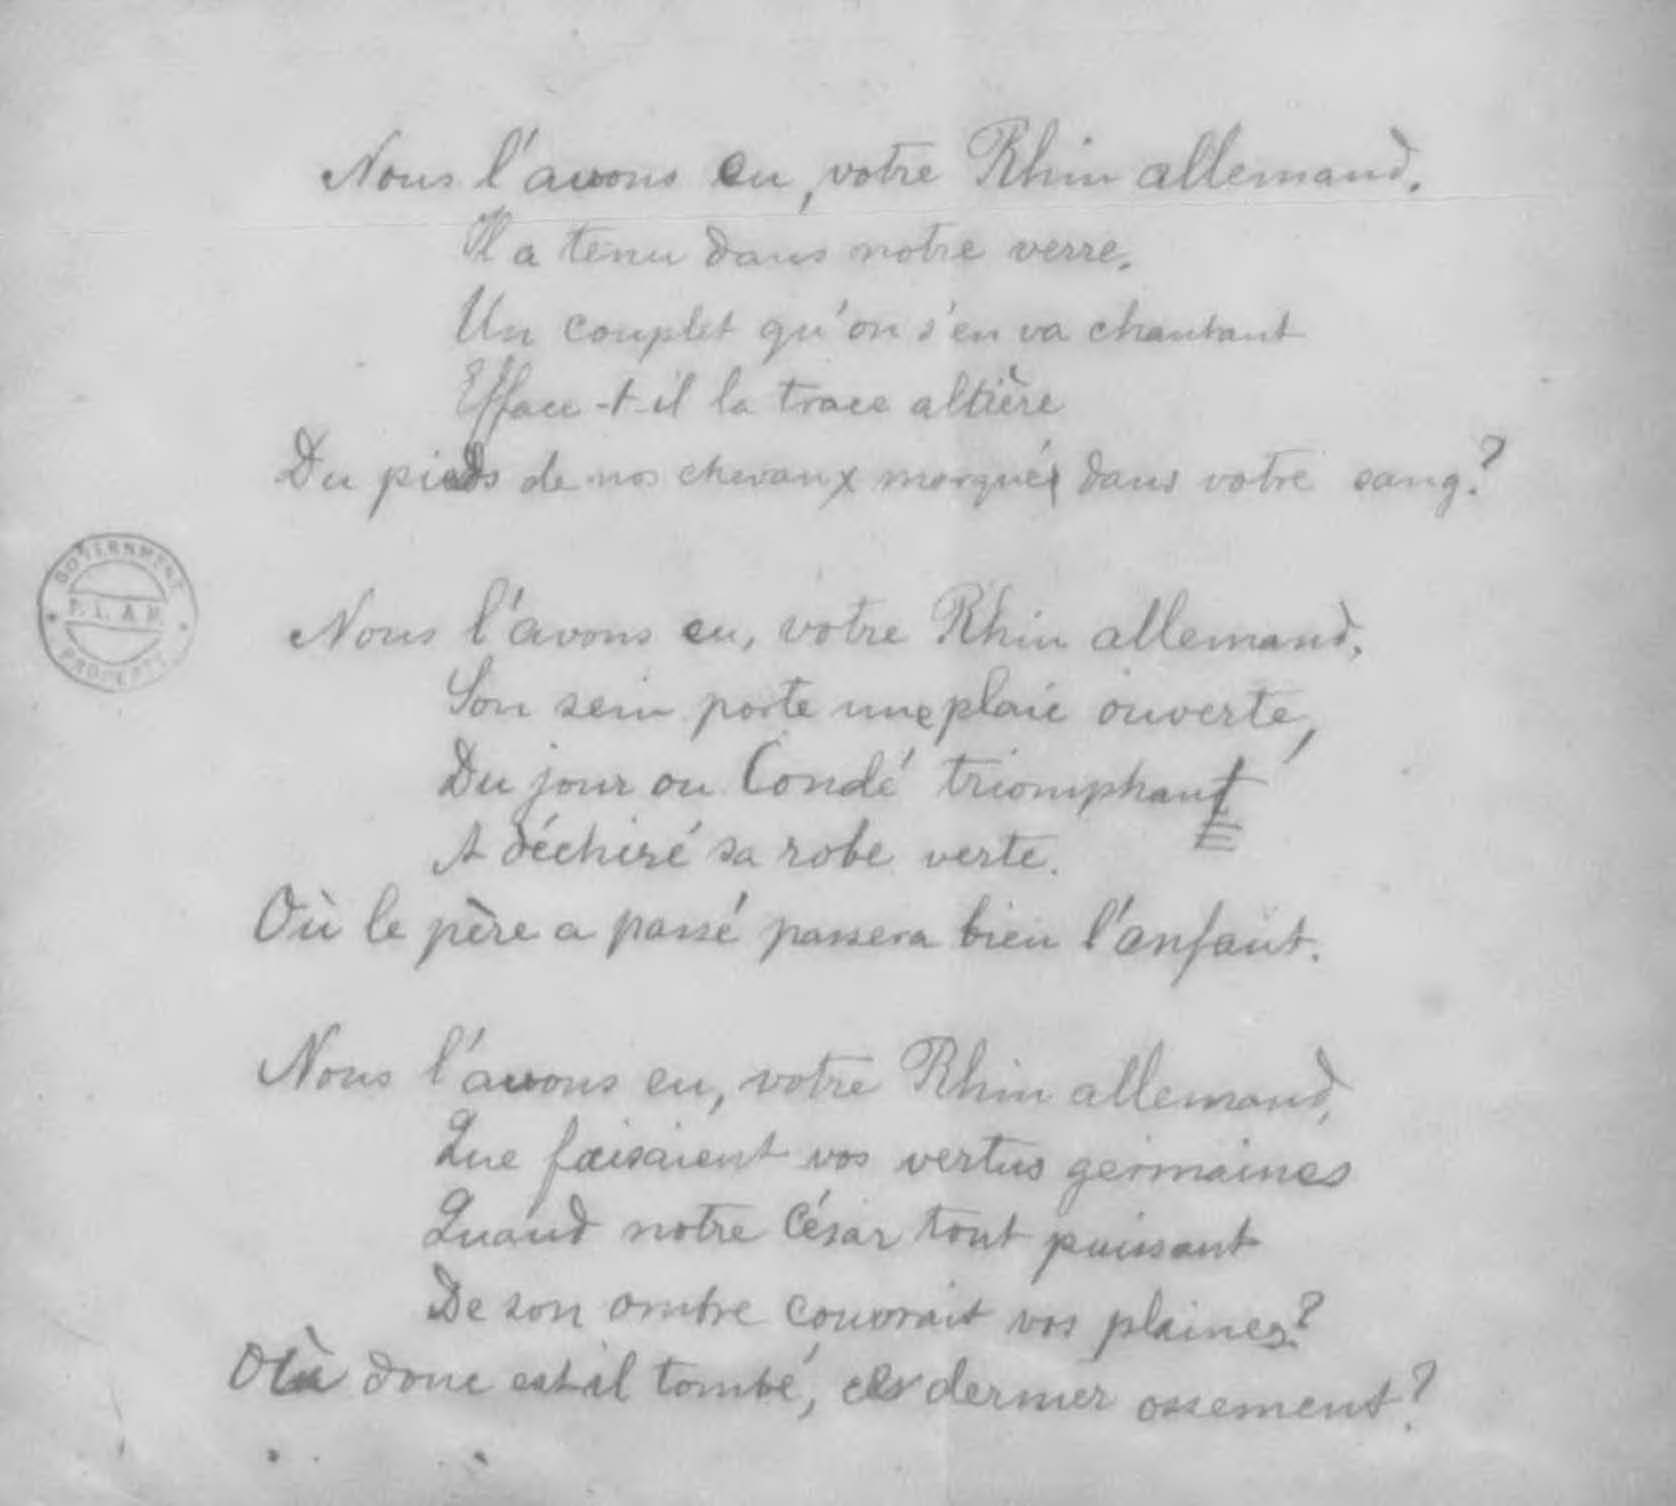 Nous l'avons eu, votre Rhin allemand.
Il a tenu dans notre verre.
Un couplet qu'on s'en va chantant
Efface-t-il la trace altière
Du pieds de nos chevaux marqués dans votre sang?
GOVERNMENT
P.I.&H.
PROPERTY
Nous l'avons eu, votre Rhin allemand,
Son sein porte une plaie ouverte,
Du jour ou Condé triomphant
A déchiré sa robe verte.
Où le père a passé passera bien l'enfant.
Nous l'avons eu, votre Rhin allemand,
Que faisaient vos vertus germaines
Quand notre César tout puissant
De son ombre couvrait vos plaines?
Où donc est il tombé, dernier ossement?